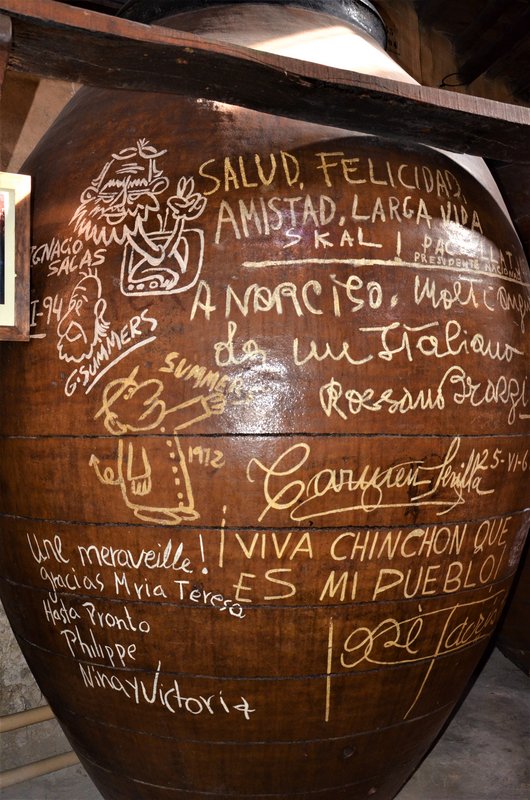 SALUD, FELICIDAD,
AMISTAD, LARGA VIDA
SKAL!
PRESIDENTE NACIONAL
IGNACIO
SALAS
I-94
G. SUMMERS
A NARCISO.
de un Italiano
Rossano Brazzi
SUMMERS
1972
Carmen Sevilla 25-VI-6
¡VIVA CHINCHON QUE
ES MI PUEBLO!
Une meraveille!
gracias Mria Teresa
Hasta Pronto
Philippe,
Nina y Victoria
José